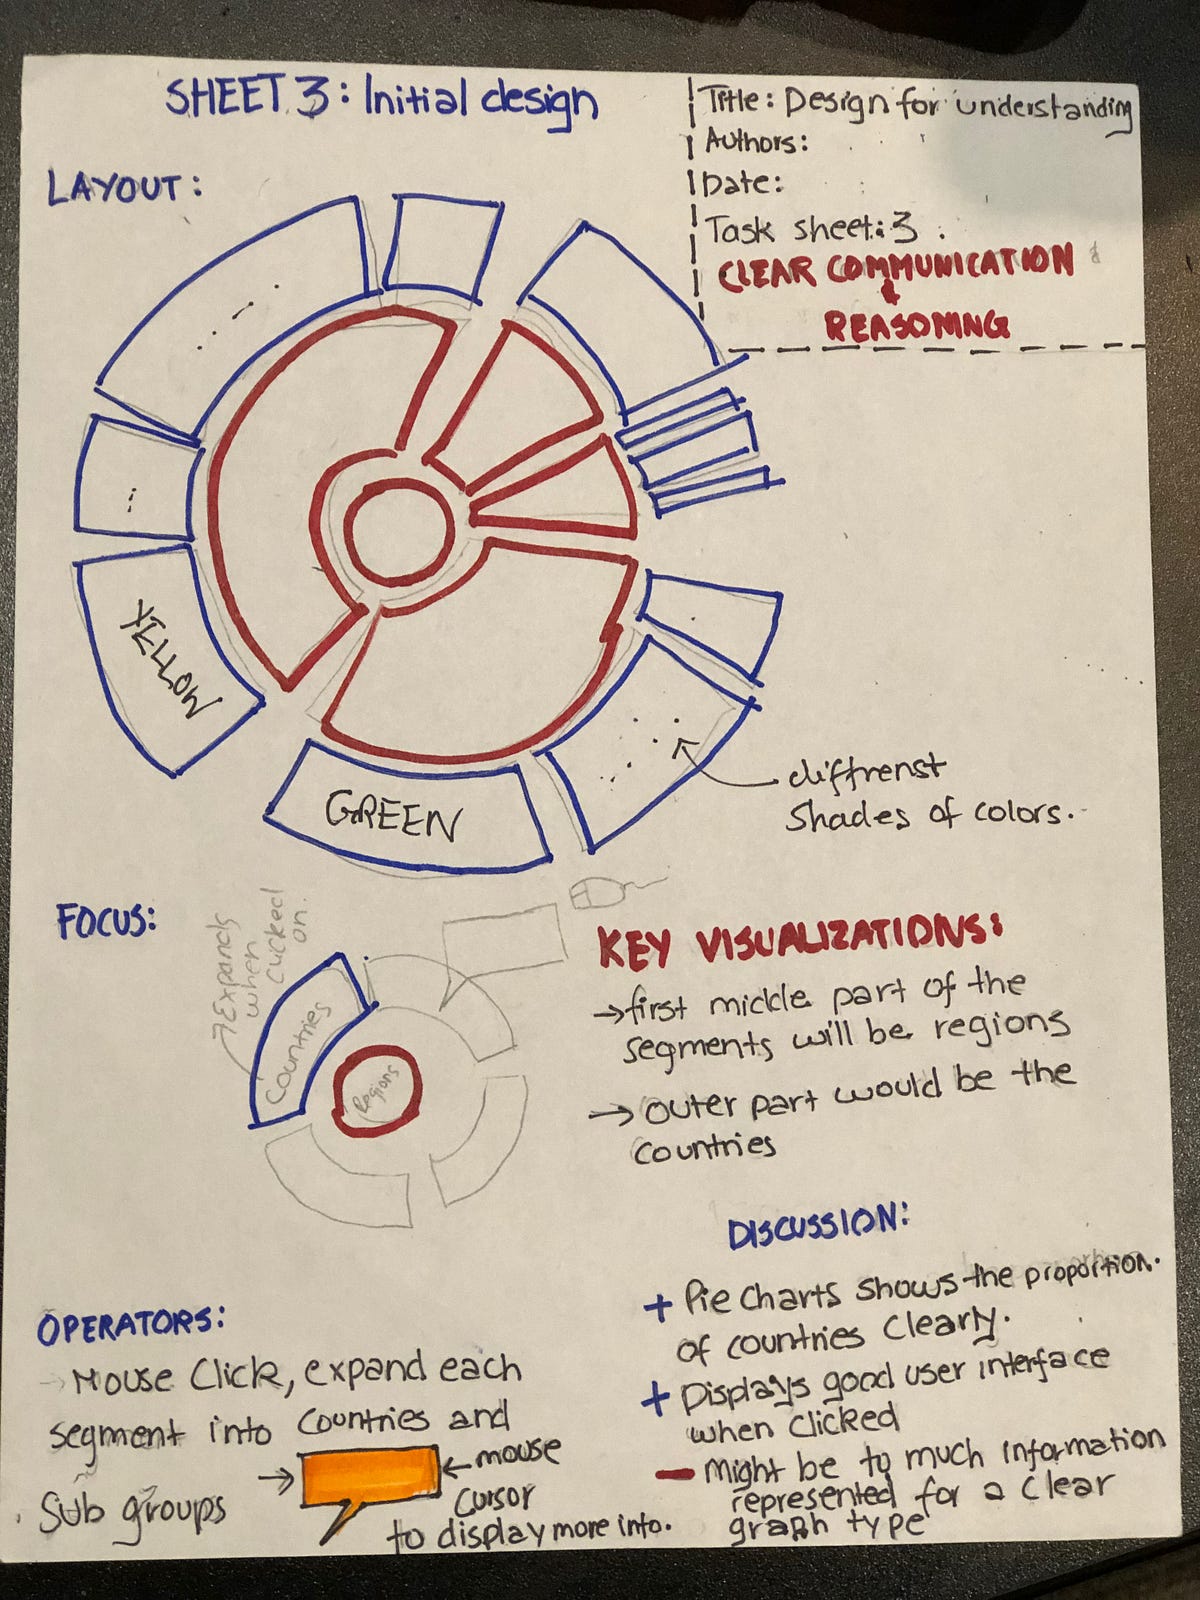 SHEET 3: Initial design
Title: Design for understanding
Authors:
Date:
Task sheet: 3
CLEAR COMMUNICATION
&
REASONING
LAYOUT:
YELLOW
GREEN
diffrenst
shades of colors.
FOCUS:
Expands
when
clicked
on.
Countries
Regions
KEY VISUALIZATIONS:
→first mickle part of the
segments will be regions
→ outer part would be the
countries
DISCUSSION:
+ Pie charts shows the proportion.
of countries clearly.
+ Displays good user interface
when clicked
- Might be to much information
represented for a clear
graph type
OPERATORS:
→ Mouse Click, expand each
segment into countries and
Sub groups
→ ← mouse
cursor
to display more into.